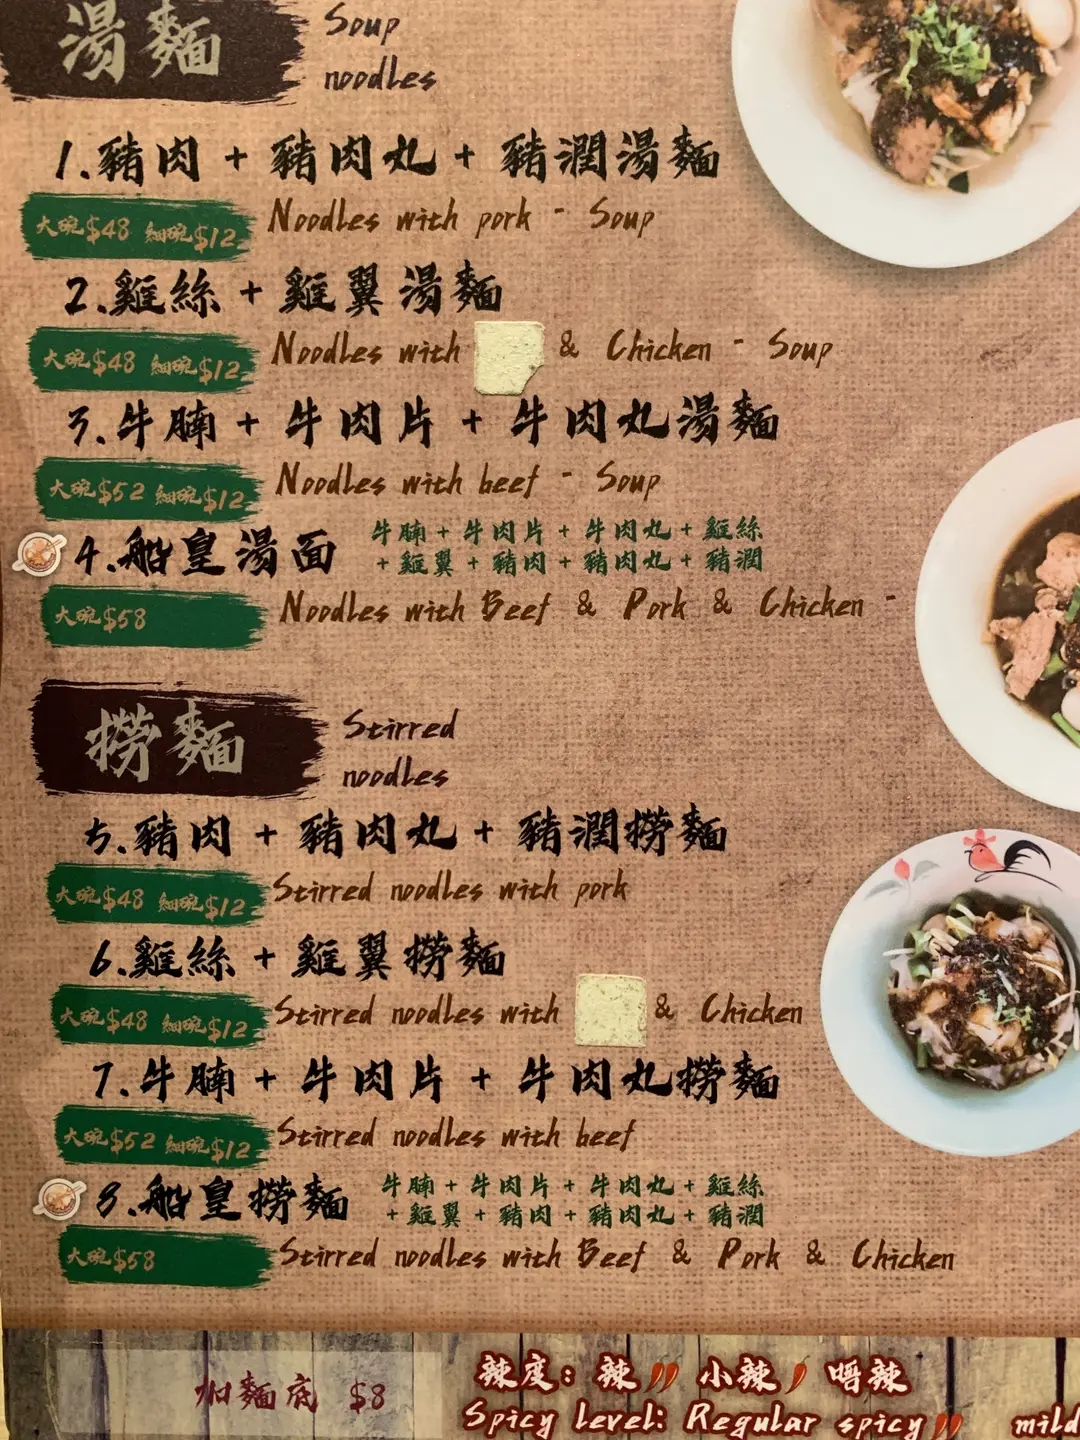 湯麵 Soup
noodles
1.豬肉 + 豬肉丸 + 豬潤湯麵
大碗$48 細碗$12 Noodles with pork - Soup
2.雞絲 + 雞翼湯麵
大碗$48 細碗$12 Noodles with & Chicken - Soup
3.牛腩 + 牛肉片 + 牛肉丸湯麵
大碗$52 細碗$12 Noodles with beef - Soup
4.船皇湯面 牛腩 + 牛肉片 + 牛肉丸 + 雞絲
+ 雞翼 + 豬肉 + 豬肉丸 + 豬潤
大碗$58 Noodles with Beef & Pork & Chicken -
撈麵 Stirred
noodles
5.豬肉 + 豬肉丸 + 豬潤撈麵
大碗$48 細碗$12 Stirred noodles with pork
6.雞絲 + 雞翼撈麵
大碗$48 細碗$12 Stirred noodles with & Chicken
7.牛腩 + 牛肉片 + 牛肉丸撈麵
大碗$52 細碗$12 Stirred noodles with beef
8.船皇撈麵 牛腩 + 牛肉片 + 牛肉丸 + 雞絲
+ 雞翼 + 豬肉 + 豬肉丸 + 豬潤
大碗$58 Stirred noodles with Beef & Pork & Chicken
加麵底 $8
辣度: 辣 小辣 唔辣
Spicy level: Regular spicy mild